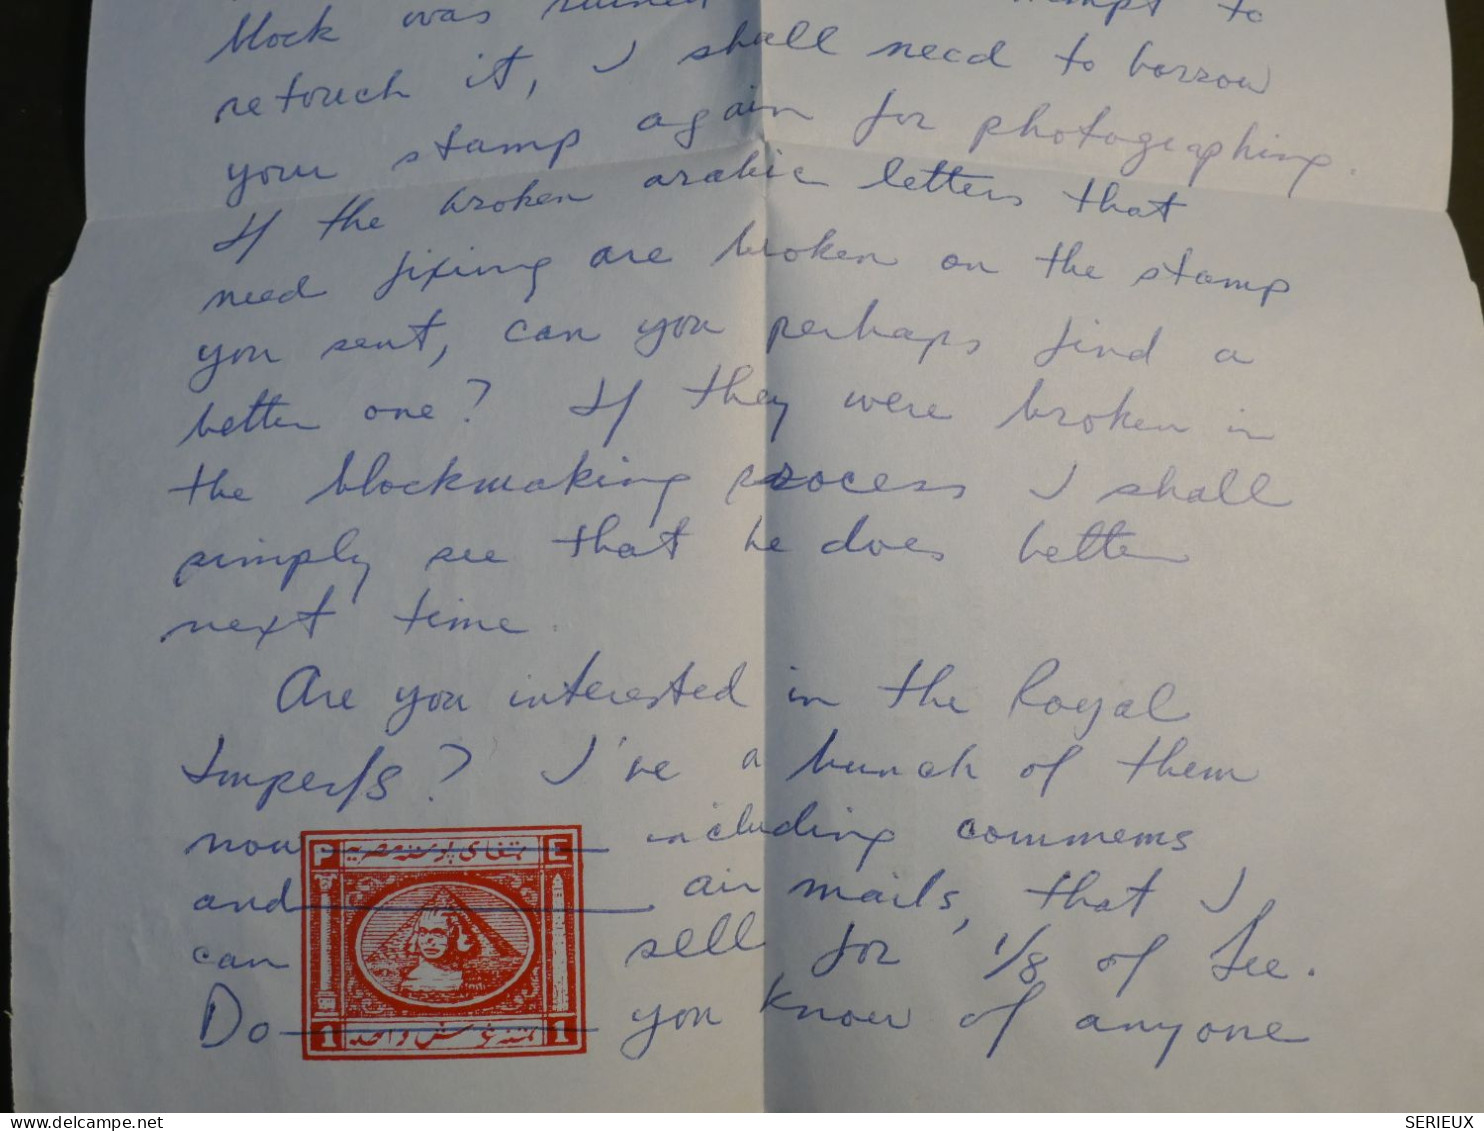 block was ruined to
retouch it, I shall need to borrow
your stamp again for photographing.
If the broken arabic letters that
need fixing are broken on the stamp
you sent, can you perhaps find a
better one? If they were broken in
the blockmaking process I shall
simply see that he does better
next time.
Are you interested in the Royal
Imperfs? I've a bunch of them
now including commems
and air mails, that I
can sell for 1/8 of Zee.
Do you know of anyone
P E
1 1
DELCAMPE.NET
SERIEUX